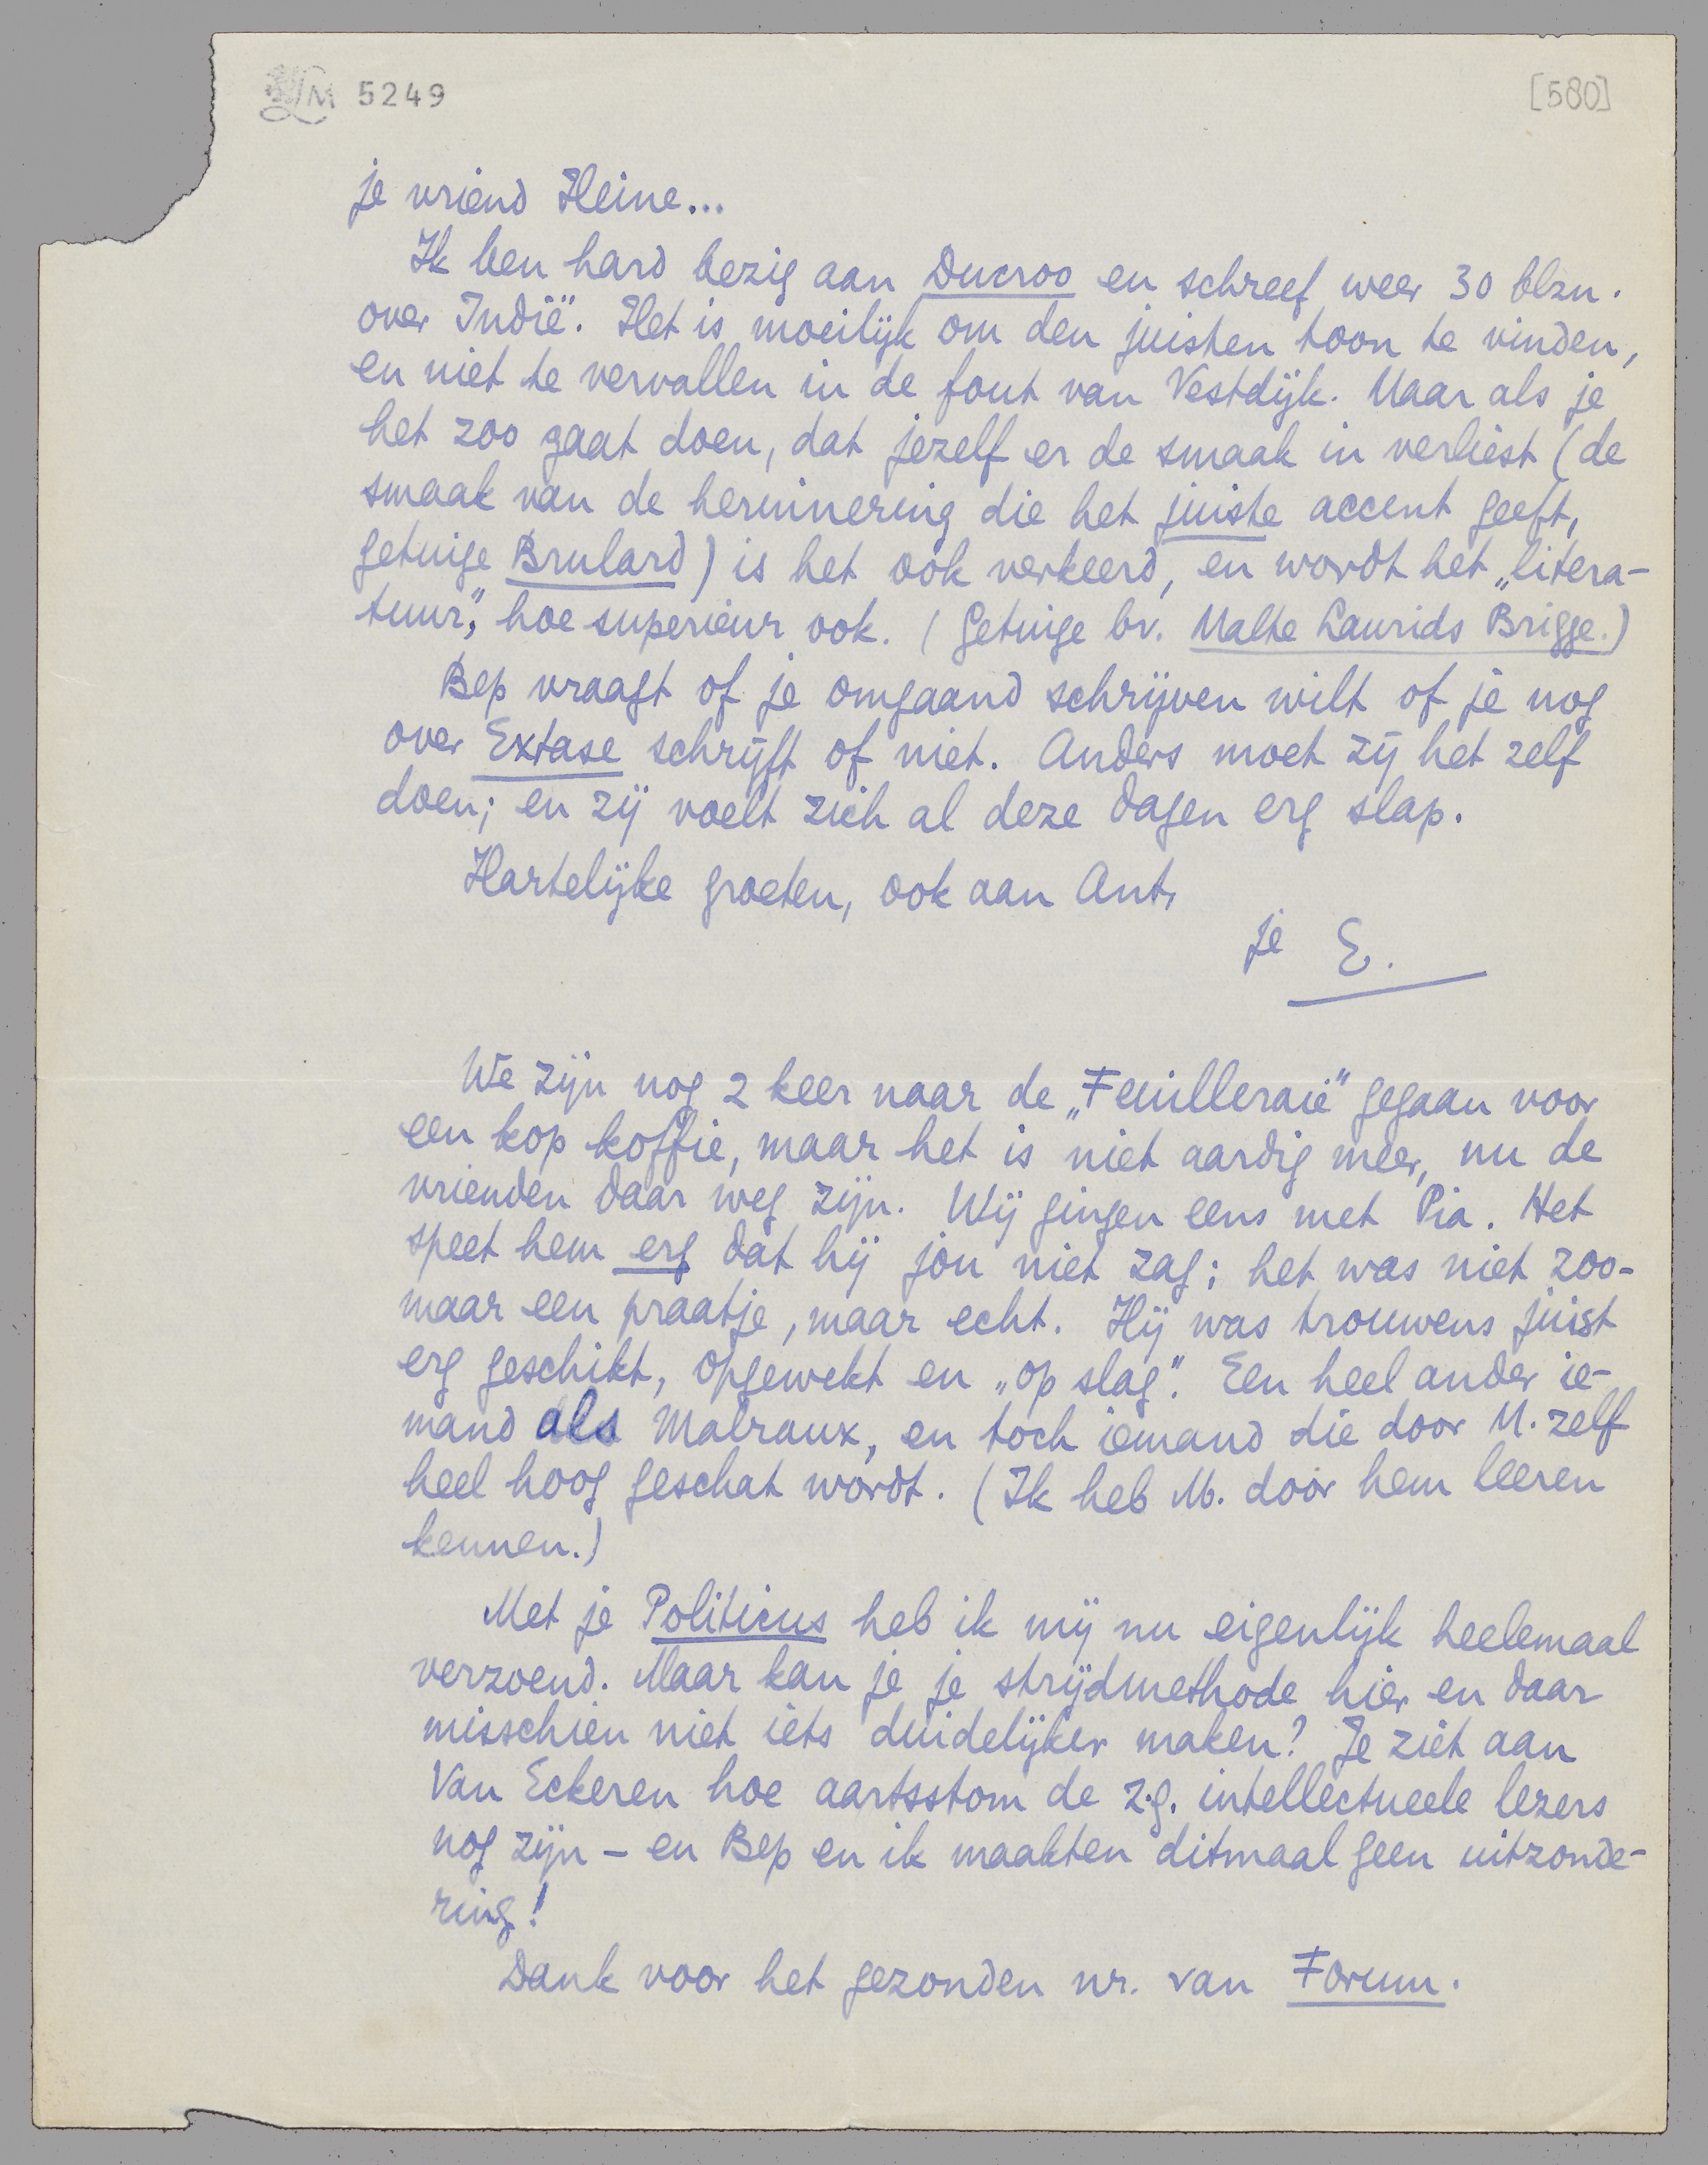 LM 5249
[580]
je vriend Heine...
Ik ben hard bezig aan Ducroo en schreef weer 30 blzn.
over Indië. Het is moeilijk om den juisten toon te vinden,
en niet te vervallen in de fout van Vestdijk. Maar als je
het zoo gaat doen, dat jezelf er de smaak in verliest (de
smaak van de herinnering die het juiste accent geeft,
getuige Brulard) is het ook verkeerd, en wordt het „litera-
tuur”, hoe superieur ook. (Getuige bv. Malte Laurids Brigge.)
Bep vraagt of je omgaand schrijven wilt of je nog
over Extase schrijft of niet. Anders moet zij het zelf
doen; en zij voelt zich al deze dagen erg slap.
Hartelijke groeten, ook aan Ant,
je E.
We zijn nog 2 keer naar de „Feuilleraie” gegaan voor
een kop koffie, maar het is niet aardig meer, nu de
vrienden daar weg zijn. Wij gingen eens met Pia. Het
speet hem erg dat hij jou niet zag; het was niet zoo-
maar een praatje, maar echt. Hij was trouwens juist
erg geschikt, opgewekt en „op slag”. Een heel ander ie-
mand als Malraux, en toch iemand die door M. zelf
heel hoog geschat wordt. (Ik heb M. door hem leeren
kennen.)
Met je Politicus heb ik mij nu eigenlijk heelemaal
verzoend. Maar kan je je strijdmethode hier en daar
misschien niet iets duidelijker maken? Je ziet aan
Van Eckeren hoe aartsstom de z.g. intellectueele lezers
nog zijn – en Bep en ik maakten ditmaal geen uitzonde-
ring!
Dank voor het gezonden nr. van Forum.